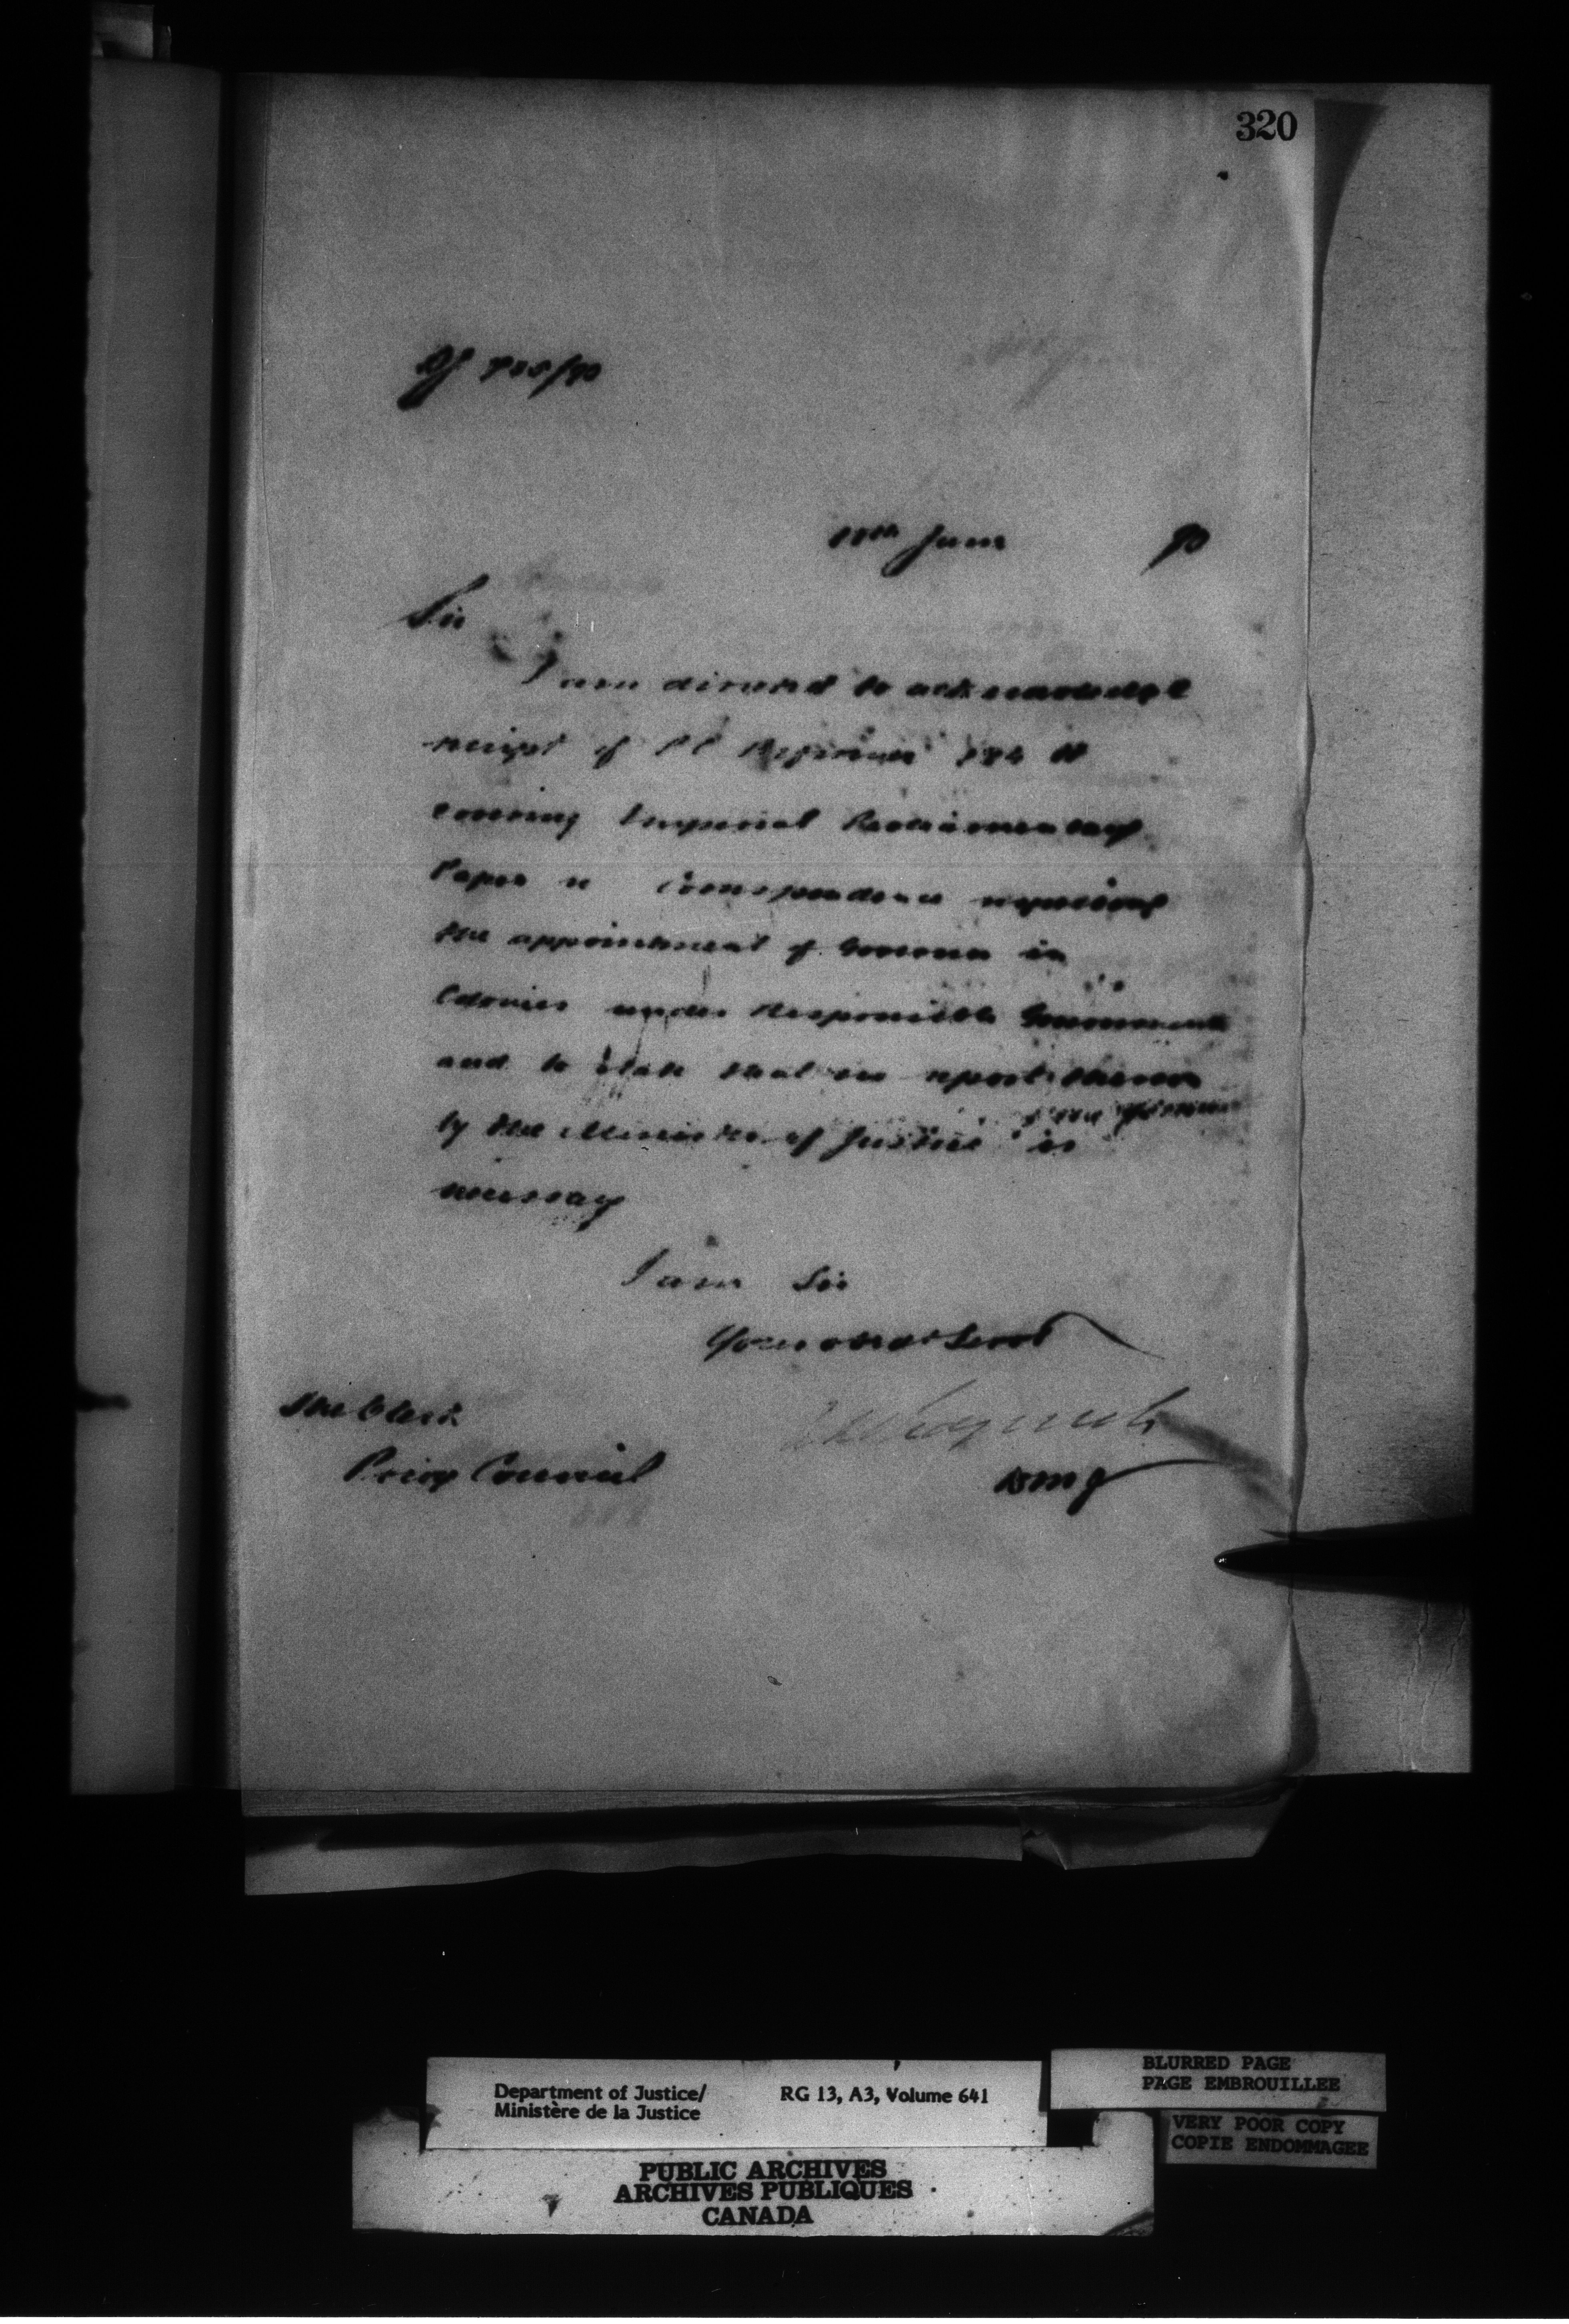 320
18th June 90
Sir
I am directed to acknowledge
receipt of P C Reference 284 H
covering Imperial Parliamentary
Paper re Correspondence respecting
the appointment of Governor in
Colonies under Responsible Government
and to state that no report thereon
by the Minister of Justice is
necessary
I am Sir
Your obedt Servt
The Clerk
Privy Council
DMJ
Department of Justice/
Ministère de la Justice
RG 13, A3, Volume 641
BLURRED PAGE
PAGE EMBROUILLEE
VERY POOR COPY
COPIE ENDOMMAGEE
PUBLIC ARCHIVES
ARCHIVES PUBLIQUES
CANADA